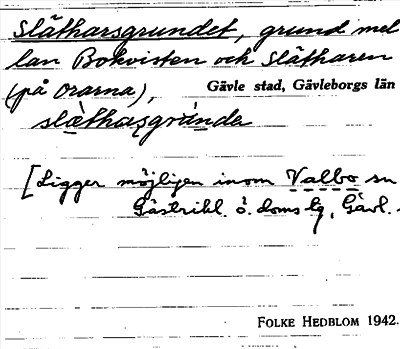 Slätharsgrundet, grund mel
lan Bokvisten och Slätharen
(på Orarna), Gävle stad, Gävleborgs län
slæthasgrúnde
[Ligger möjligen inom Valbo sn
Gästrikl. ö. doms lg, Gävl.
FOLKE HEDBLOM 1942.